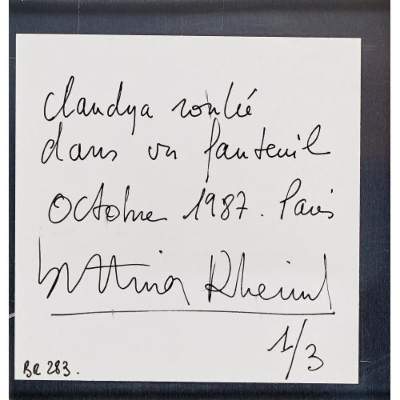 Claudya roulée
dans un fauteuil
Octobre 1987. Paris
Bettina Rheims
1/3
BR 283.